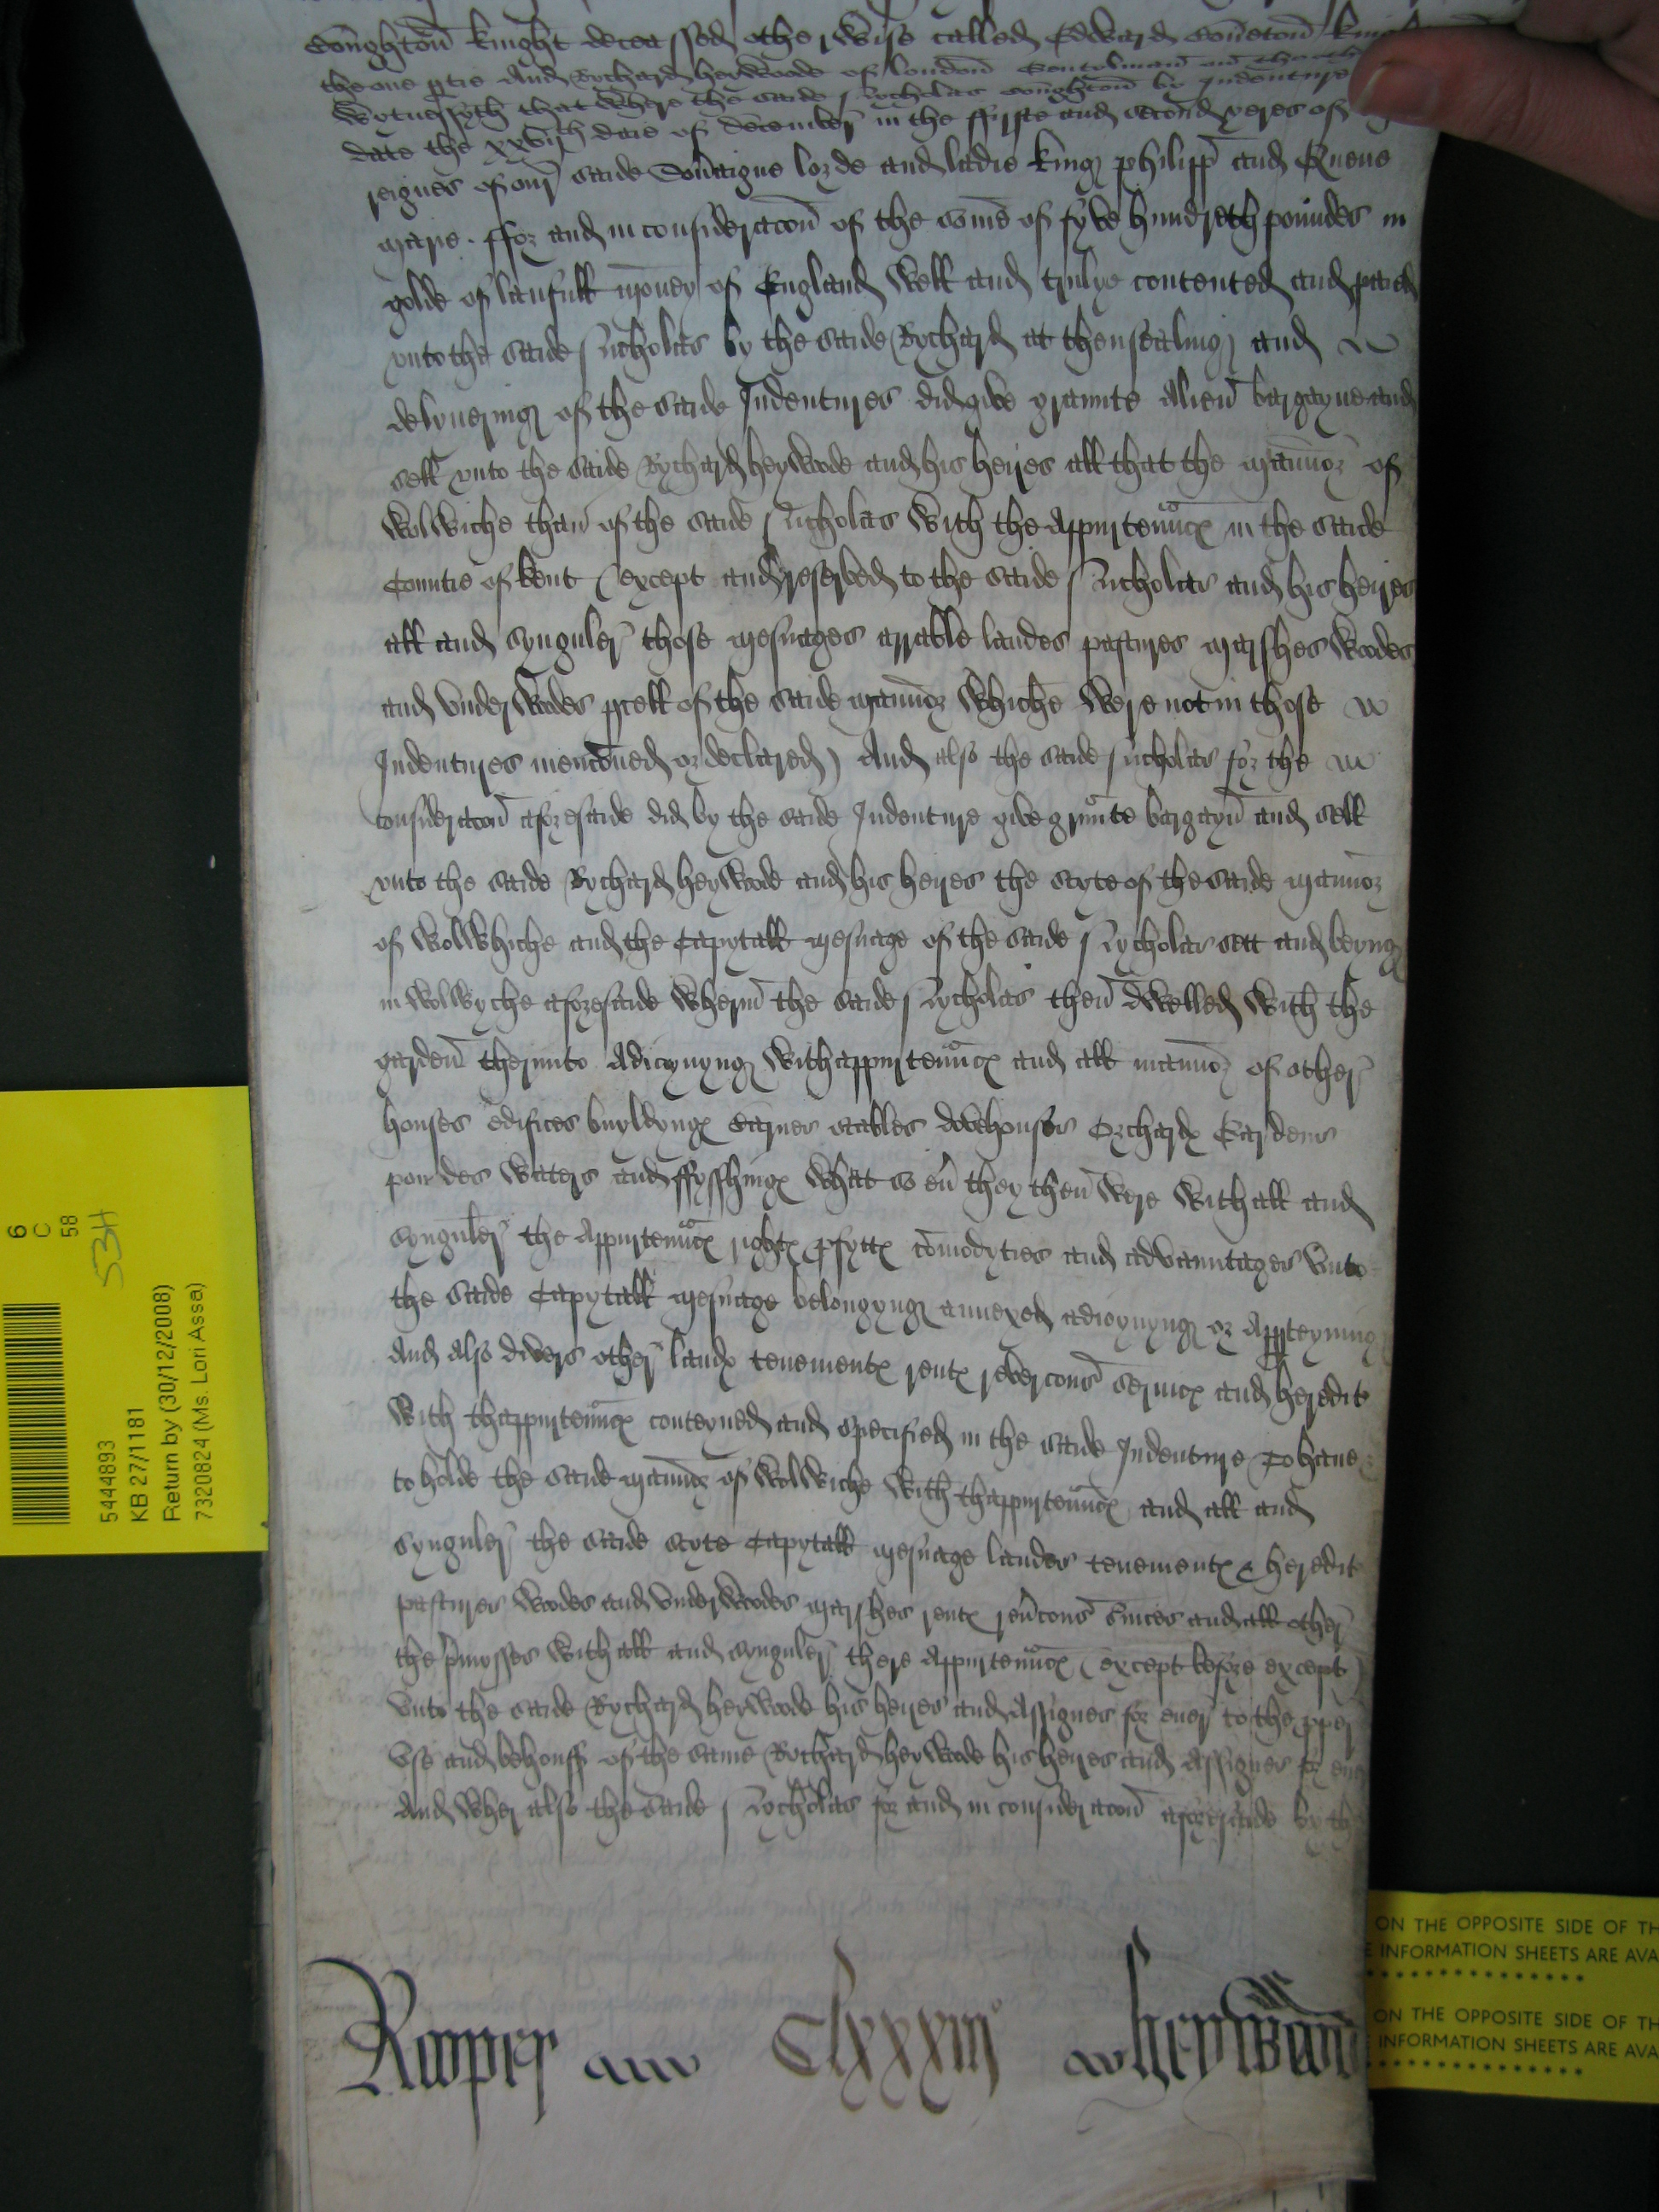 Boughton knight deceassed otherwise called Edward Boweton
the one ptie And Rychard heywoode of london Gentelman on
Wytnessyth that Where the saide Nycholas Boughton by Indenture
date the xxviijth daie of December in the ffyrste and second yeres of
reignes of our saide Souaigne lorde and ladie king philipp and Quene
Marie . ffor and in consideracon of the Some of fyve hundreth poundes in
golde of lawfull money of England Well and trulye contented and paied
vnto the saide Nicholas by the saide Rychard at thensealing and
delyuering of the saide Indentures did give graunte Alien bargayne and
sell vnto the saide Rychard heywoode and his heires all that the Mannor of
Wolwiche than of the saide Nicholas With the Appurtenncs in the saide
Countie of kent (except and reserved to the saide Nicholas and his heires
all and synguler those Mesuages arrable landes pastures Marshes Woodes
and vnderwodes pcell of the saide Mannor Whiche Were not in those
Indentures mencioned or declared) And also the saide Nicholas for the
consideracon aforesaide did by the saide Indenture give grunte bargayn and sell
vnto the saide Rychard heywoode and his heires the scyte of the saide Mannor
of Wolwhiche and the Capytall Mesuage of the saide Nycholas sett and beyng
in Wolwyche aforesaide Wherin the saide Nycholas then dwelled With the
garden therunto Adioynyng With appurtenncs and all mannor of other
houses edifices buyldyngs Barnes stables dovehouses Orchards Gardens
pondes Waters and ffysshings What so eu they then Were With all and
synguler the Appurtenncs rights pfytts comodyties and advauntages vnto
the saide Capytall Mesuage belongyng annexed adioynyng or Apperteyning
And also divers other lands tenements rents revercons seruics and heredit
With thappurtenncs conteyned and specified in the saide Indenture To haue
to holde the saide Mannor of Wolwiche With thappurtenncs and all and
synguler the saide scyte Capytall Mesuage landes tenements & heredit
pastures Woodes and vnderwoodes Marshes rents reucons suices and all other
the pmysses With all and synguler there Appurtenncs (except before except)
vnto the saide Rychard heywoode his heires and Assignes for euer to the pper
vse and behouff of the same Rychard heywoode his heires and Assignes for euer
And Wher also the saide Nycholas for and in consideracon aforesaide by the
Rooper Clxxxiij heywood
6
C
58
53H
5444893
KB 27/1181
Return by (30/12/2008)
7320824 (Ms. Lori Assa)
ON THE OPPOSITE SIDE OF TH
INFORMATION SHEETS ARE AVA
ON THE OPPOSITE SIDE OF TH
INFORMATION SHEETS ARE AVA